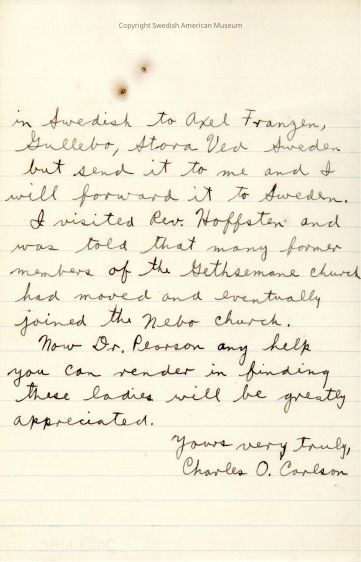 Copyright Swedish American Museum
in Swedish to Axel Franzen,
Gullebo, Stora Ved Sweden
but send it to me and I
will forward it to Sweden.
I visited Rev. Hoffsten and
was told that many former
members of the Gethsemane church
had moved and eventually
joined the Nebo church.
Now Dr. Pearson any help
you can render in finding
these ladies will be greatly
appreciated.
Yours very truly,
Charles O. Carlson